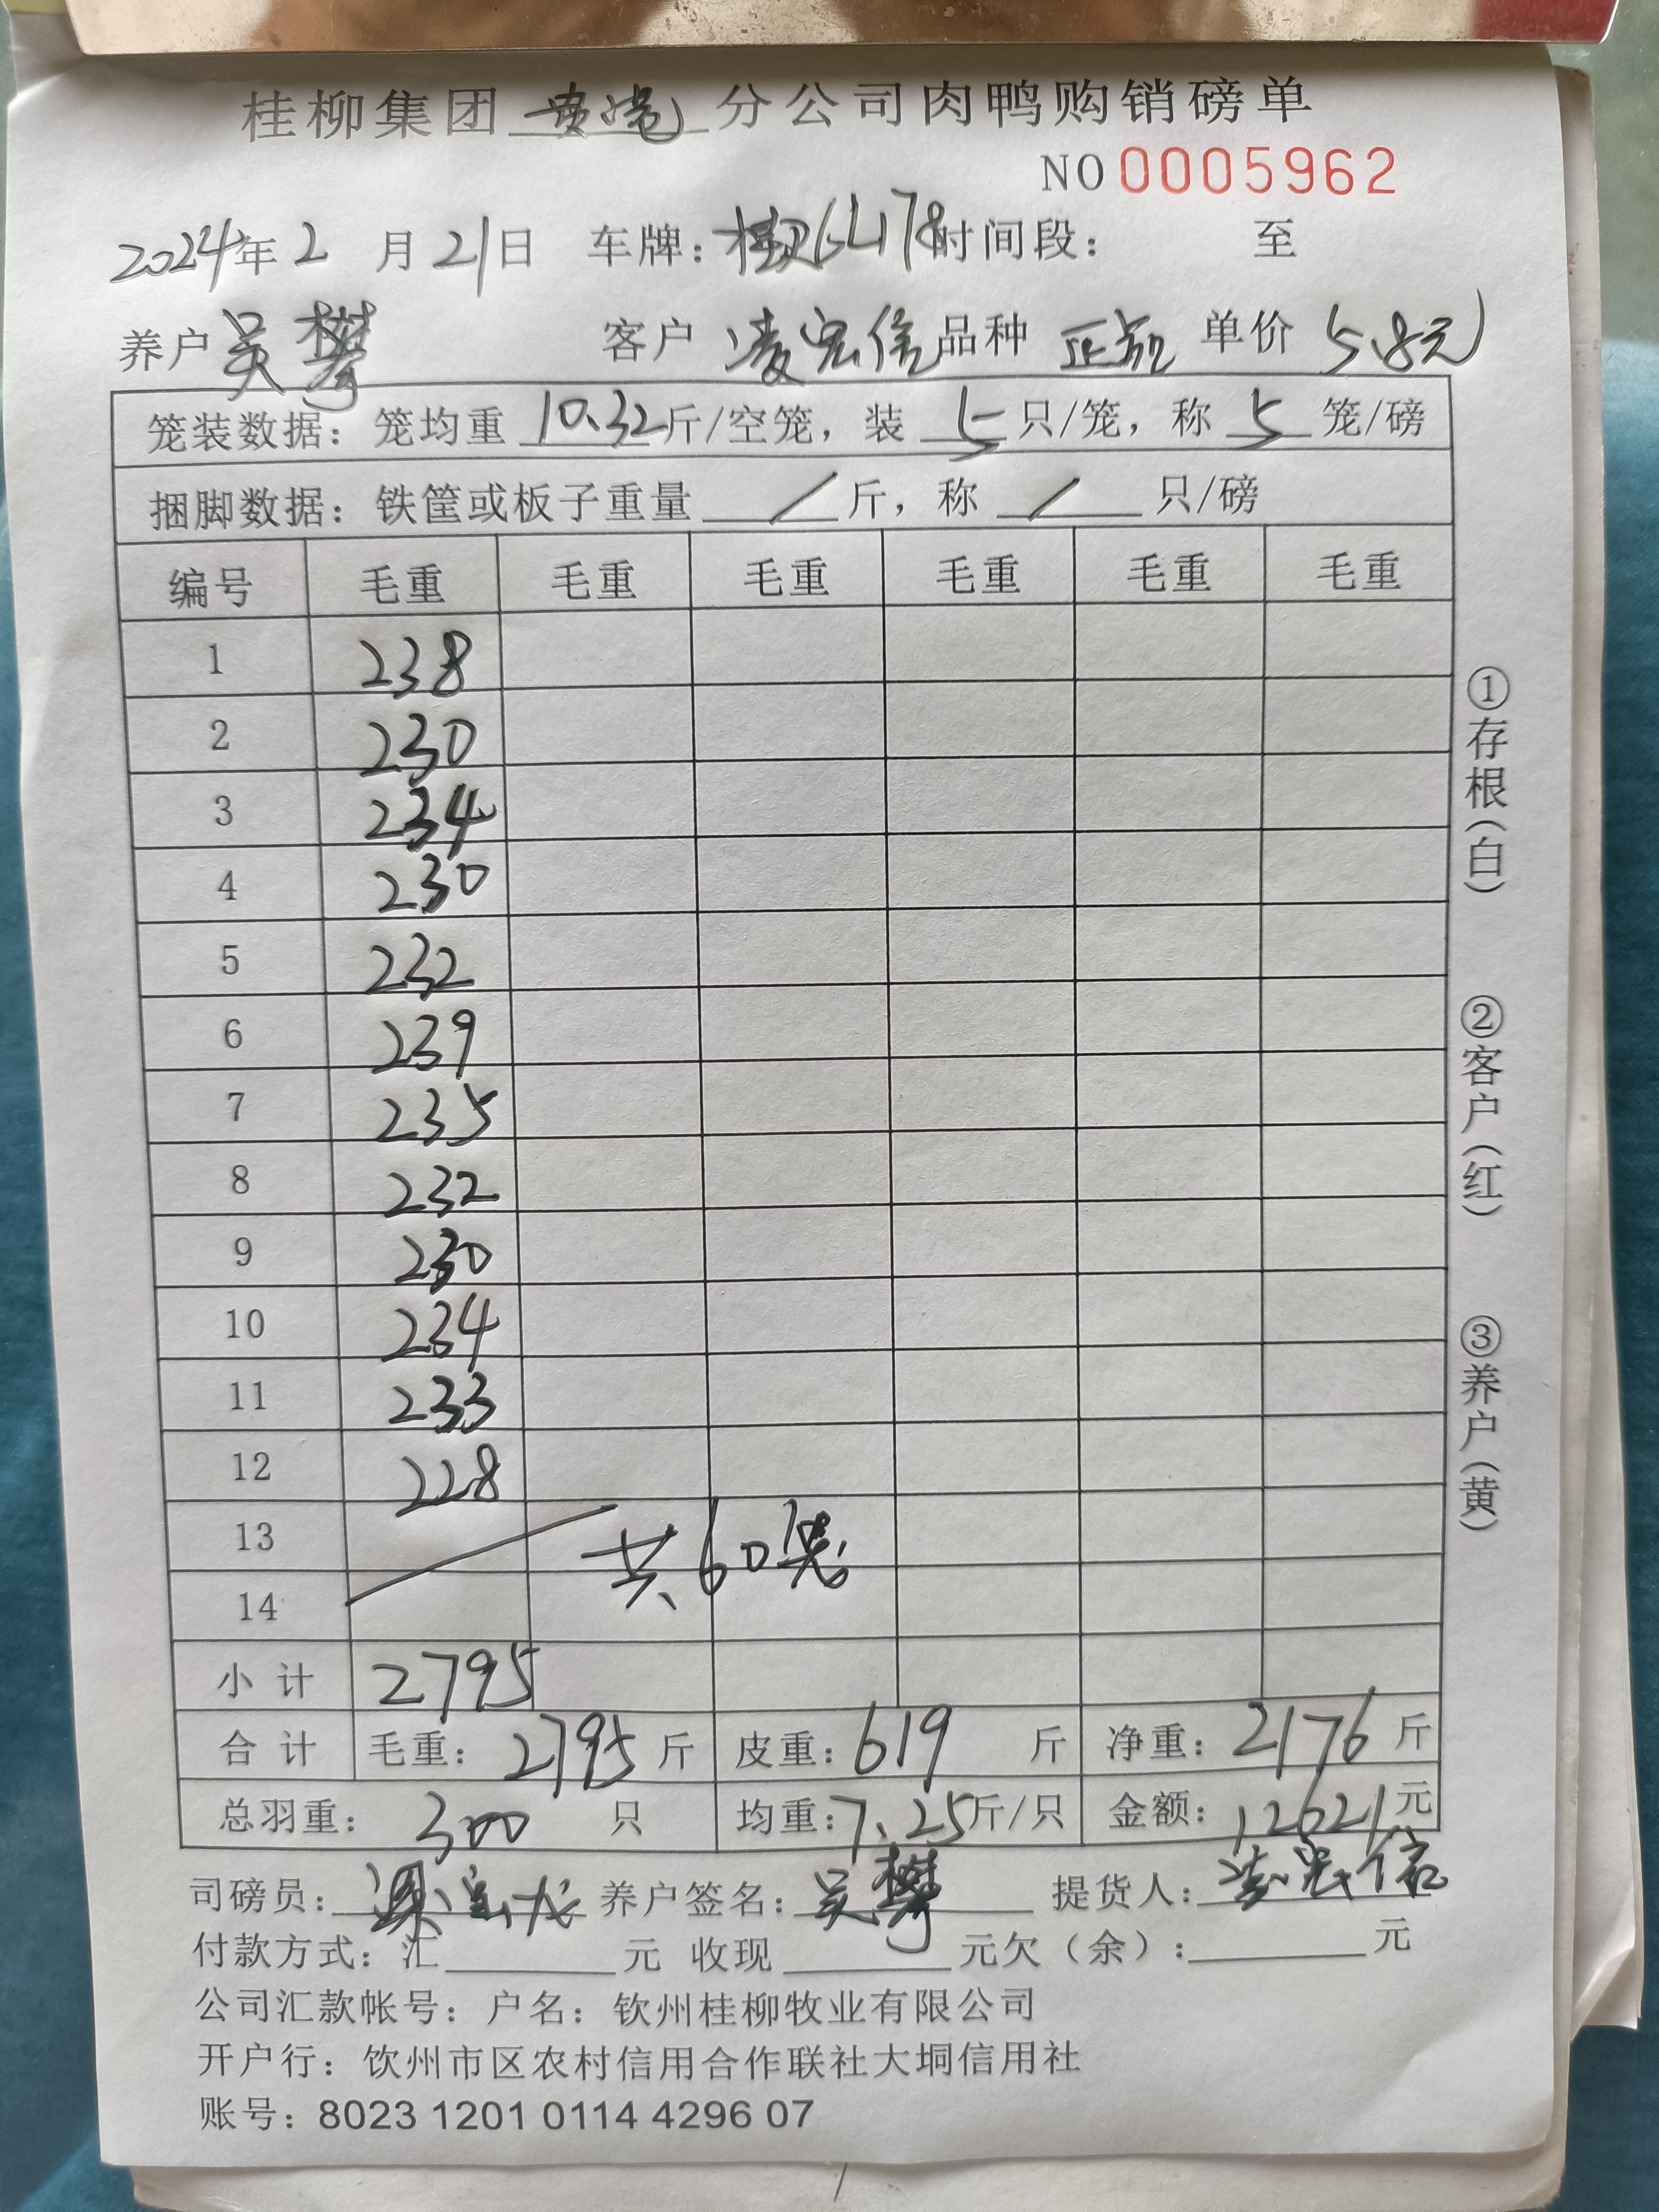 桂柳集团 分公司肉鸭购销磅单
NO 0005962
2024年2月21日 车牌: 时间段: 至
养户 吴攀 客户 凌宏信 品种 正品 单价 5.8元
笼装数据: 笼均重 10.32斤/空笼, 装 5 只/笼, 称 5 笼/磅
捆脚数据: 铁筐或板子重量 / 斤, 称 / 只/磅
编号 毛重 毛重 毛重 毛重 毛重 毛重
1 238
2 230
3 234
4 230
5 232
6 239
7 235
8 232
9 230
10 234
11 233
12 228
13 共60笼
14
小计 2795
合计 毛重: 2795 斤 皮重: 619 斤 净重: 2176 斤
总羽重: 300 只 均重: 7.25斤/只 金额: 12621元
司磅员: 养户签名: 吴攀 提货人: 凌宏信
付款方式: 汇 元 收现 元欠(余): 元
公司汇款帐号: 户名: 钦州桂柳牧业有限公司
开户行: 钦州市区农村信用合作联社大垌信用社
账号: 8023 1201 0114 4296 07
①存根(白)
②客户(红)
③养户(黄)